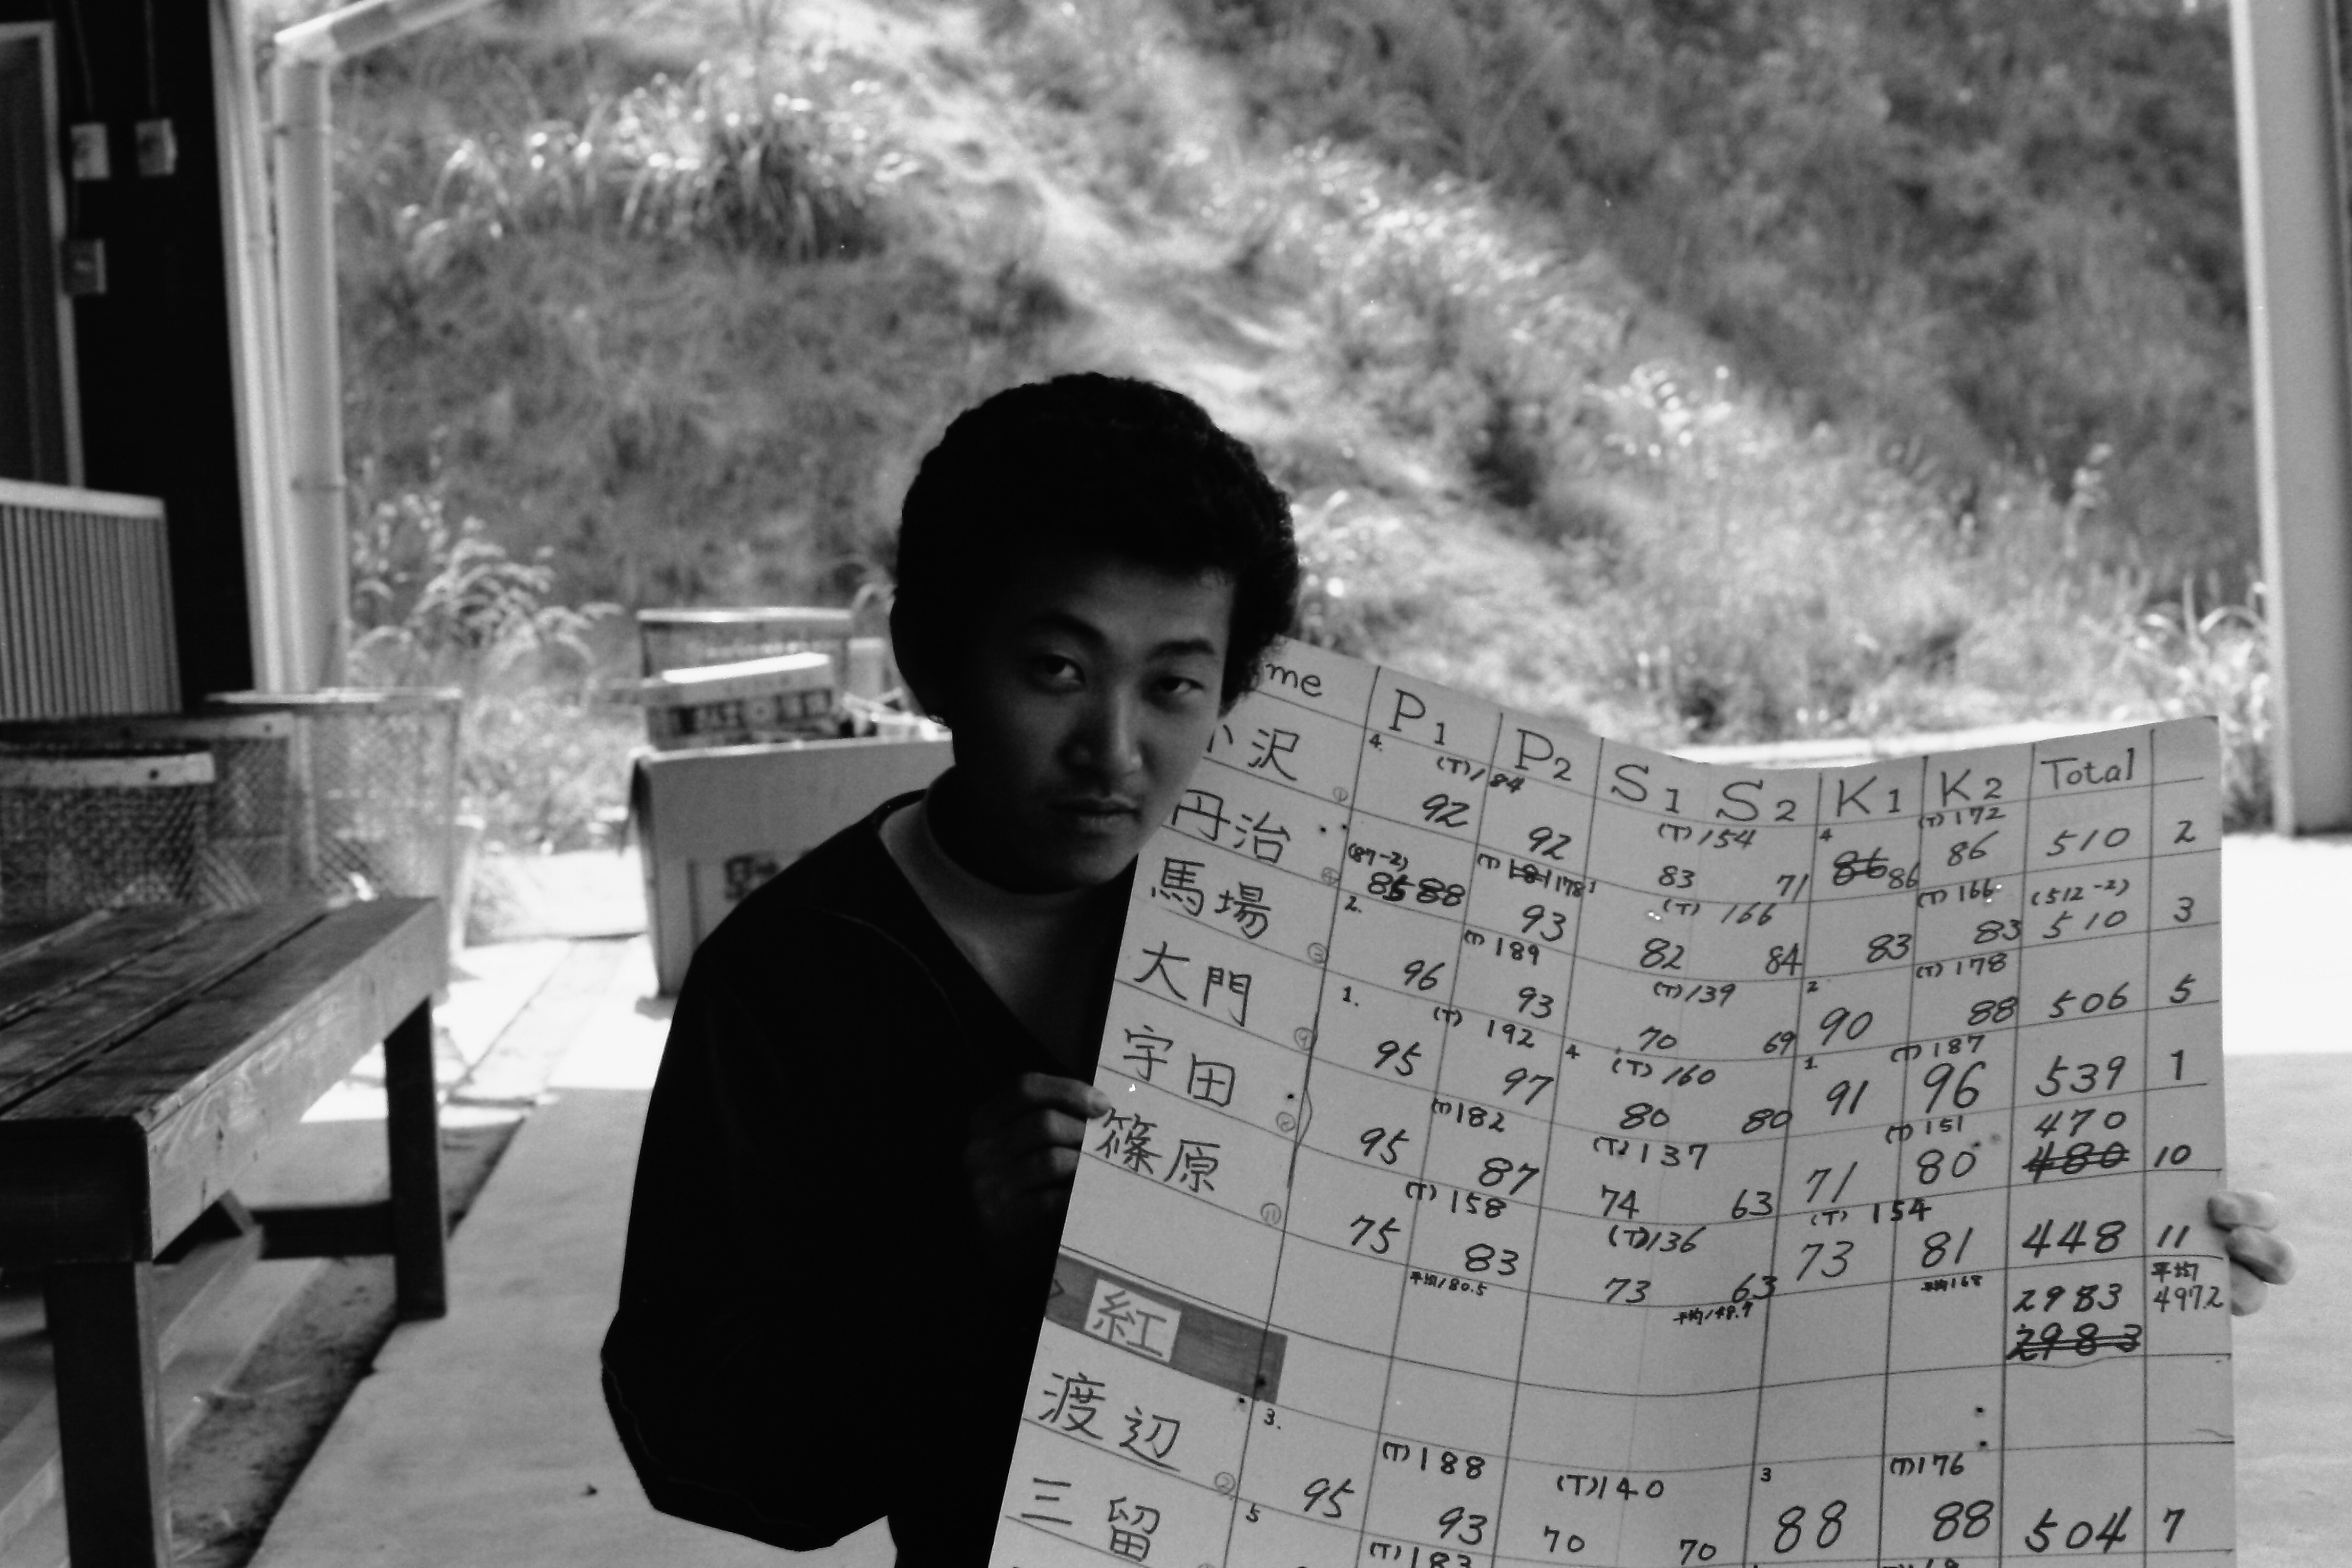 me P1 P2 S1 S2 K1 K2 Total
小沢 4. (T)184 (T)154 4 (T)172
92 92 83 71 86 86 86 510 2
丹治 (87-2) (T) 181 178 (T) 166 (T) 166 (512-2)
88 93 82 84 83 83 510 3
馬場 2. (T) 189 (T)139 2 (T) 178
96 93 70 69 90 88 506 5
大門 1. (T) 192 4 (T)160 1. (T)187
95 97 80 80 91 96 539 1
宇田 (T)182 (T)137 (T)151 470
95 87 74 63 71 80 480 10
篠原 (T) 158 (T)136 (T) 154
75 83 73 63 73 81 448 11
平均180.5 平均148.7 平均168 2983 平均
4972
2983
紅
渡辺 3. (T)188 (T)140 3 (T)176
95 93 70 70 88 88 504 7
三留 5 (T)183